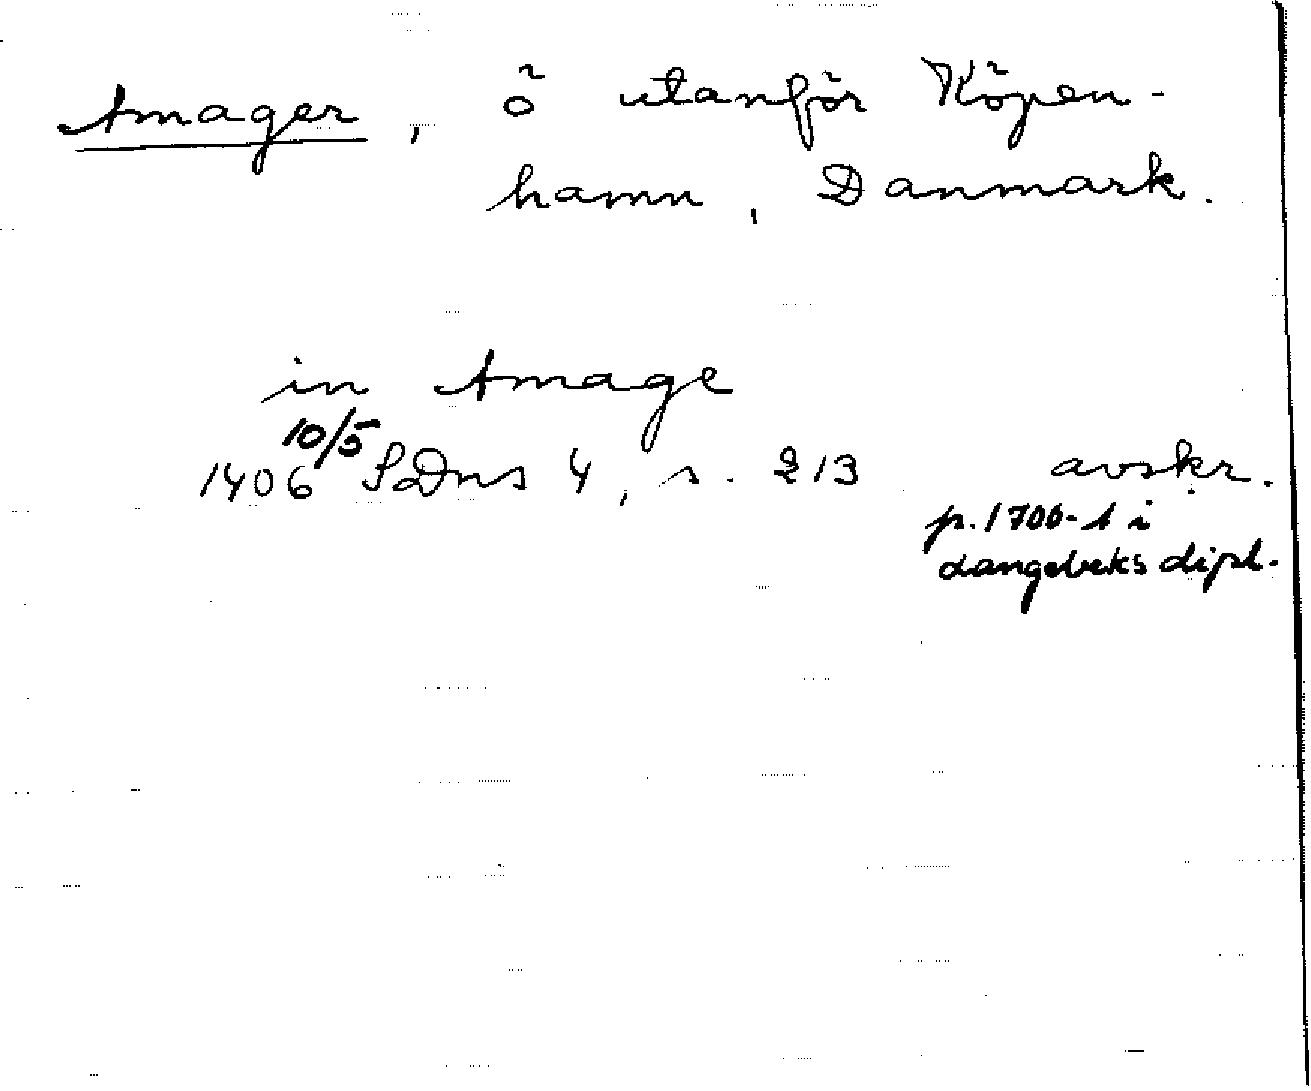 Amager, ö utanför Köpen-
hamn, Danmark.
in Amage
1406 10/5 SoDns 4, s. 213 avskr.
p. 1700-t i
Langebeks dipl.